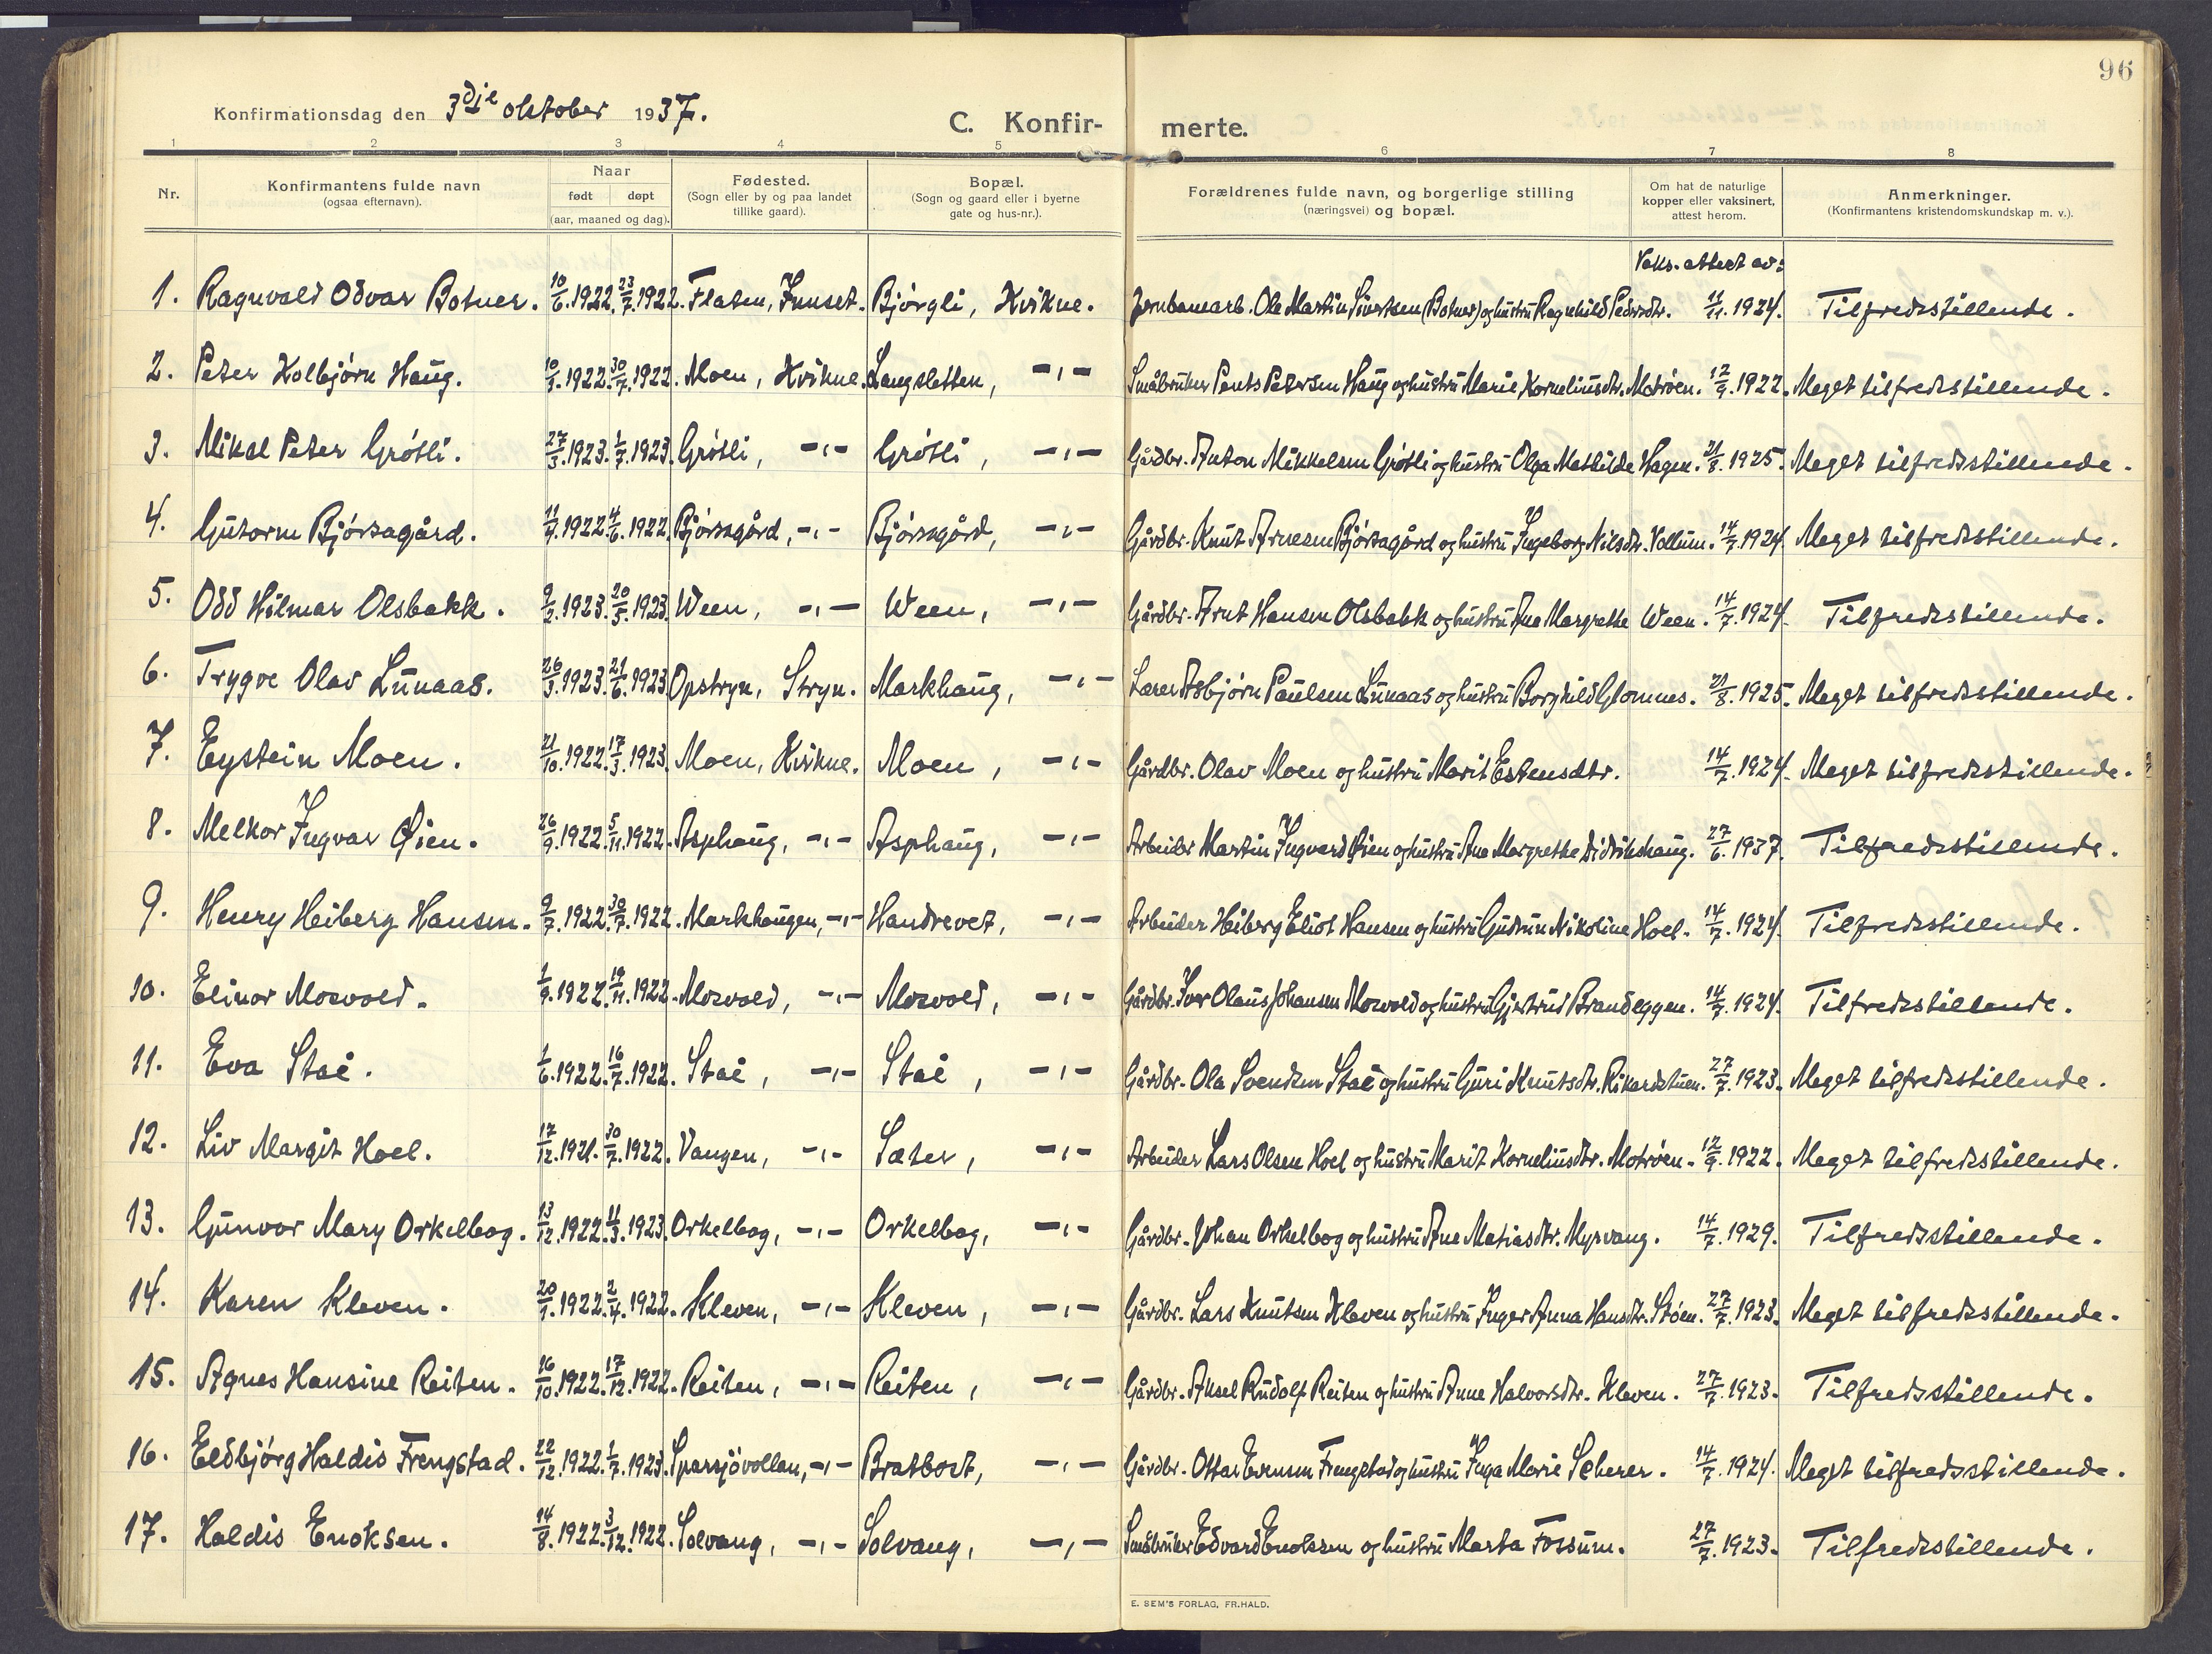 96
Konfirmationsdag den 3die oktober 1937.
C. Konfir-
merte.
1 2 3 4 5 6 7 8
Nr.
Konfirmantens fulde navn
(ogsaa efternavn).
Naar
født døpt
(aar, maaned og dag).
Fødested.
(Sogn eller by og paa landet
tillike gaard).
Bopæl.
(Sogn og gaard eller i byerne
gate og hus-nr.).
Forældrenes fulde navn, og borgerlige stilling
(næringsvei) og bopæl.
Om hat de naturlige
kopper eller vaksinert,
attest herom.
Anmerkninger.
(Konfirmantens kristendomskundskap m. v.).
Vaks. attest av:
1. Ragnvald Odvar Botner. 10/6.1922. 23/7.1922. Flaten, Innset. Bjørgli, Kvikne. Jernbanearb. Ole Martin Sivertsen (Botner) og hustru Ragnhild Pedersdtr. 11/11.1924. Tilfredsstillende.
2. Peter Kolbjørn Haug. 10/3.1922. 30/7.1922. Moen, Kvikne. Langsletten, -"- Småbruker Pents Petersen Haug og hustru Marie Korneliusdtr. Motrøen. 12/9.1922. Meget tilfredsstillende.
3. Mikal Peter Grøtli. 27/3.1923. 1/7.1923. Grøtli, -"- Grøtli, -"- Gårdbr. Anton Mikkelsen Grøtli og hustru Olga Mathilde Hagen. 21/8.1925. Meget tilfredsstillende.
4. Gutorm Bjørsagård. 11/4.1922. 4/6.1922. Bjørsagård, -"- Bjørsagård, -"- Gårdbr. Knut Arnesen Bjørsagård og hustru Ingeborg Nilsdtr. Vollum. 14/7.1924. Meget tilfredsstillende.
5. Odd Hilmar Olsbakk. 9/2.1923. 20/5.1923. Ween, -"- Ween, -"- Gårdbr. Arnt Hansen Olsbakk og hustru Ane Margrethe Ween. 14/7.1924. Tilfredsstillende.
6. Trygve Olav Lunaas. 26/3.1923. 21/6.1923. Opstryn, Stryn. Markhaug, -"- Lærer Asbjørn Paulsen Lunaas og hustru Borghild Glomnes. 21/8.1925. Meget tilfredsstillende.
7. Eystein Moen. 21/10.1922. 17/3.1923. Moen, Kvikne. Moen, -"- Gårdbr. Olav Moen og hustru Marit Estensdtr. 14/7.1924. Meget tilfredsstillende.
8. Melkor Ingvar Øien. 26/9.1922. 5/11.1922. Asphaug, -"- Asphaug, -"- Arbeider Martin Ingvard Øien og hustru Ane Margrethe Didrikshaug. 27/6.1937. Tilfredsstillende.
9. Henry Heiberg Hansen. 9/7.1922. 30/7.1922. Markhaugen, -"- Handrevet, -"- Arbeider Heiberg Eliot Hansen og hustru Gudrun Nikoline Hoel. 14/7.1924. Tilfredsstillende.
10. Elinor Mosvold. 1/9.1922. 19/11.1922. Mosvold, -"- Mosvold, -"- Gårdbr. Iver Olaus Johansen Mosvold og hustru Gjertrud Brandeggen. 14/7.1924. Tilfredsstillende.
11. Eva Stai. 1/6.1922. 16/7.1922. Stai, -"- Stai, -"- Gårdbr. Ola Svendsen Stai og hustru Guri Knutsdtr. Rikardstuen. 27/7.1923. Meget tilfredsstillende.
12. Liv Margit Hoel. 17/12.1921. 30/7.1922. Vangen, -"- Sæter, -"- Arbeider Lars Olsen Hoel og hustru Marit Korneliusdtr. Motrøen. 12/9.1922. Meget tilfredsstillende.
13. Gunvor Mary Orkelbog. 13/12.1922. 11/3.1923. Orkelbog, -"- Orkelbog, -"- Gårdbr. Johan Orkelbog og hustru Ane Matiasdtr. Myrvang. 14/7.1929. Tilfredsstillende.
14. Karen Kleven. 20/1.1922. 2/4.1922. Kleven, -"- Kleven, -"- Gårdbr. Lars Knutsen Kleven og hustru Inger Anna Hansdtr. Støen. 27/7.1923. Meget tilfredsstillende.
15. Agnes Hansine Reiten. 16/10.1922. 17/12.1922. Reiten, -"- Reiten, -"- Gårdbr. Aksel Rudolf Reiten og hustru Anne Halvorsdtr. Kleven. 27/7.1923. Tilfredsstillende.
16. Eldbjørg Haldis Frengstad. 22/12.1922. 1/7.1923. Sparsjøvollen, -"- Bratbort, -"- Gårdbr. Ottar Evensen Frengstad og hustru Inga Marie Scherer. 14/7.1924. Meget tilfredsstillende.
17. Haldis Enoksen. 14/8.1922. 3/12.1922. Solvang, -"- Solvang, -"- Småbruker Edvard Enoksen og hustru Marta Fossum. 27/7.1923. Tilfredsstillende.
E. SEM'S FORLAG, FR.HALD.